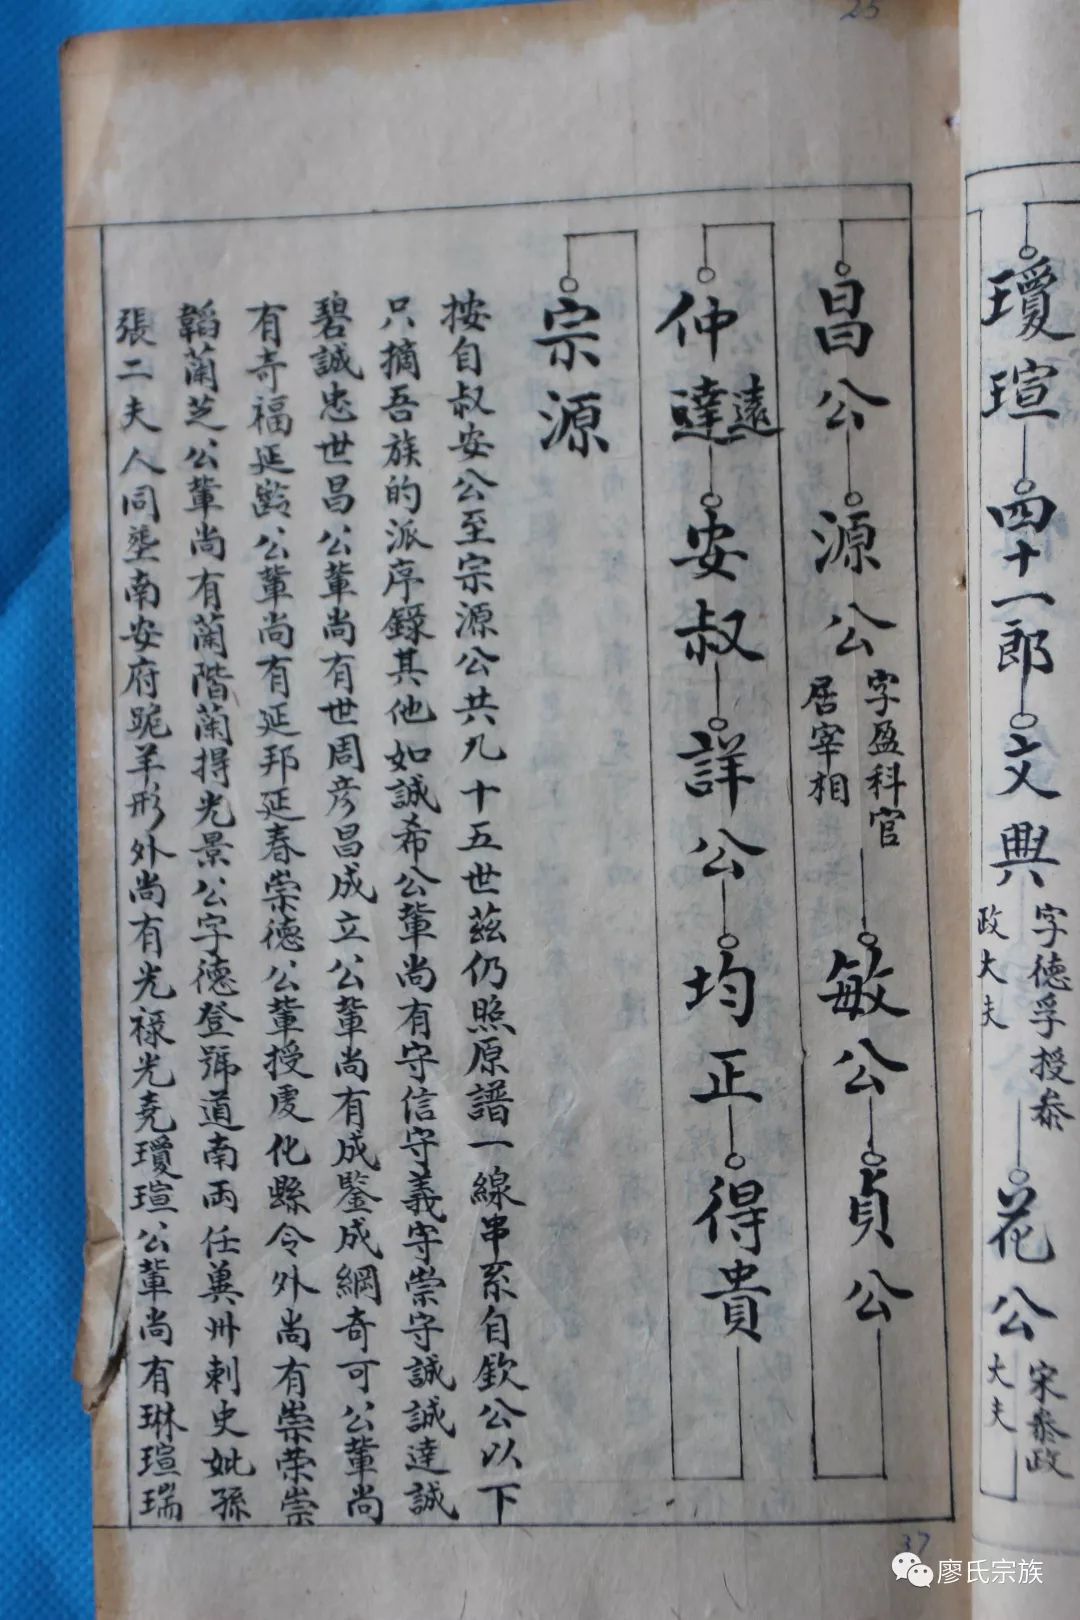 25
瓊瑄
四十一郎
文興
字德孚授叅
政大夫
花公
宋叅政
大夫
昌公
源公
字盈科官
居宰相
敏公
貞公
仲達
遠
安叔
詳公
均正
得貴
宗源
按自叔安公至宗源公共九十五世茲仍照原譜一線串系自欽公以下
只摘吾族的派序錄其他如誠希公輩尚有守信守義守崇守誠誠達誠
碧誠忠世昌公輩尚有世周彦昌成立公輩尚有成鑒成綱奇可公輩尚
有奇福延齡公輩尚有延邦延春崇德公輩授虔化縣令外尚有崇荣崇
韜蘭芝公輩尚有蘭階蘭得光景公字德登號道南両任兾州刺史妣孫
張二夫人同塟南安府跪羊形外尚有光禄光尭瓊瑄公輩尚有琳瑄瑞
37
廖氏宗族